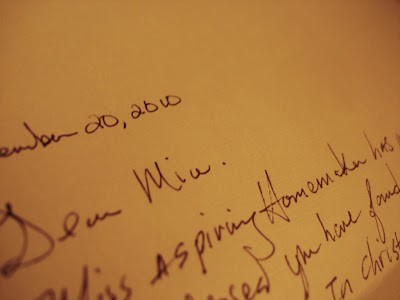 ember 20, 2010
Dear Mia.
Miss Aspiring Homemaker has
you have found
In Christ